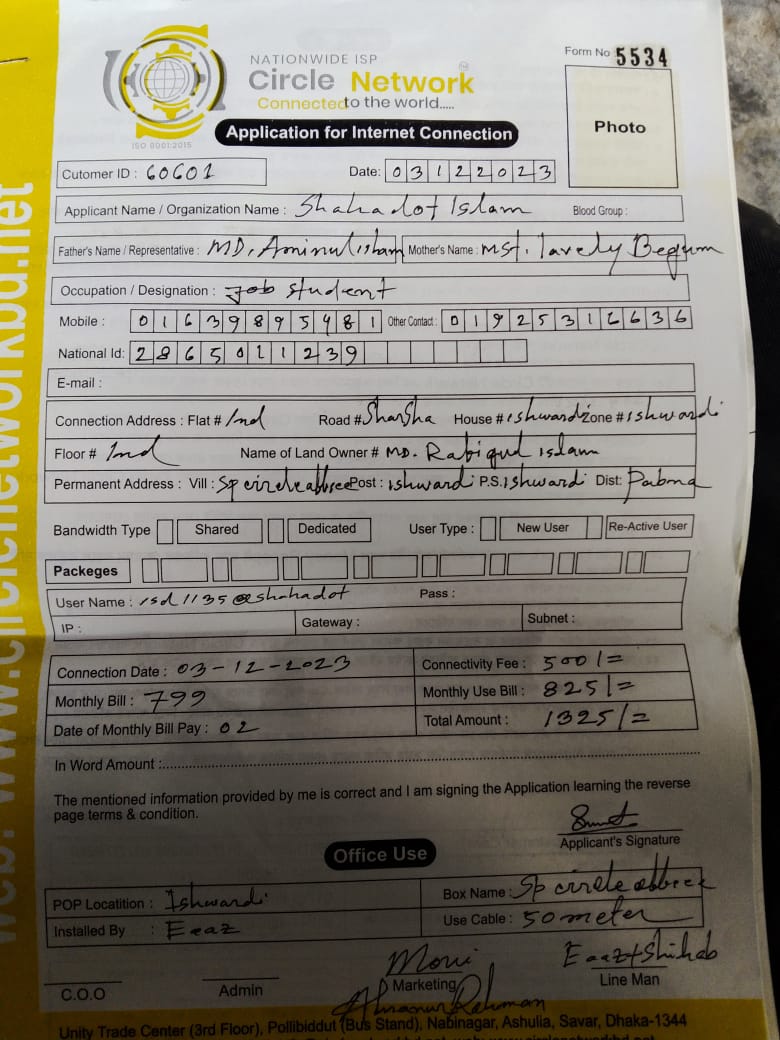 NATIONWIDE ISP
Circle Network
Connected to the world.....
ISO 9001:2015
Form No 5534
Photo
Application for Internet Connection
Cutomer ID : 60601 Date: 03122023
Applicant Name / Organization Name : Shahadot Islam Blood Group :
Father's Name / Representative : MD. Aminul isham Mother's Name : MSt. lavely Begum
Occupation / Designation : Job student
Mobile : 01639895481 Other Contact : 01925316636
National Id: 2865011239
E-mail :
Connection Address : Flat # 2nd Road # Sharsha House # ishwardi Zone # ishwardi
Floor # 2nd Name of Land Owner # MD. Rabiqul islam
Permanent Address : Vill : Sp circle Post : ishwardi P.S. ishwardi Dist: Pabna
Bandwidth Type Shared Dedicated User Type : New User Re-Active User
Packeges
User Name : isd1135@shahadot Pass :
IP : Gateway : Subnet :
Connection Date : 03-12-2023 Connectivity Fee : 500/=
Monthly Bill : 799 Monthly Use Bill : 825/=
Date of Monthly Bill Pay : 02 Total Amount : 1325/=
In Word Amount :
The mentioned information provided by me is correct and I am signing the Application learning the reverse
page terms & condition.
Applicant's Signature
Office Use
POP Locatition : Ishwardi Box Name : Sp circle
Installed By : Eeaz Use Cable : 50 meter
Eaaz+Shihab
C.O.O Admin Marketing Line Man
Unity Trade Center (3rd Floor), Pollibiddut (Bus Stand), Nabinagar, Ashulia, Savar, Dhaka-1344
web: www.circlenetworkbd.net